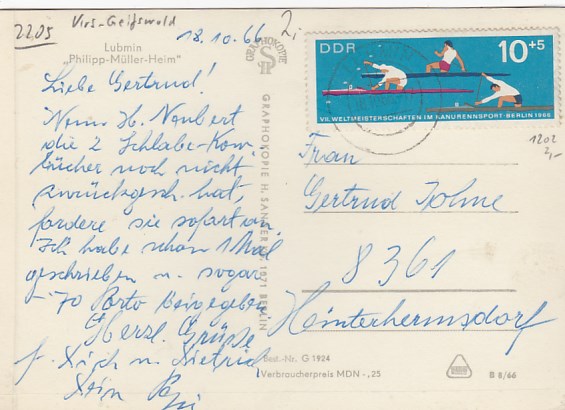 2205
Krs. Greifswald
2,-
Lubmin
„Philipp-Müller-Heim"
18.10.66
Liebe Gertrud!
Wenn H. Neubert
die 2
bücher noch nicht
zurückgesch. hat,
fordere sie sofort an.
Ich habe schon 1 Mal
geschrieben u. sogar
-70 Porto beigegeben
Herzl. Grüße
f. Dich u. Dietrich
Dein
GRAPHOKOPIE
GRAPHOKOPIE H. SANDER KG, 1071 BERLIN
DDR
10+5
VII. WELTMEISTERSCHAFTEN IM KANURENNSPORT · BERLIN 1966
1202
2,-
Frau
Gertrud Fohne
8361
Hinterhermsdorf
Best.-Nr. G 1924
Verbraucherpreis MDN -,25
B 8/66